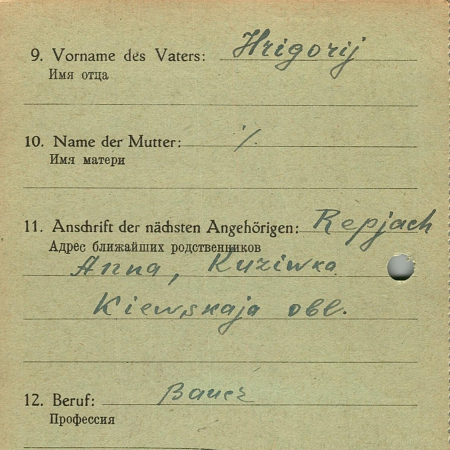 9. Vorname des Vaters: Hrigorij
Имя отца
10. Name der Mutter: %
Имя матери
11. Anschrift der nächsten Angehörigen: Repjach
Адрес ближайших родственников
Anna, Kuziwka
Kiewskaja obl.
12. Beruf: Bauer
Профессия